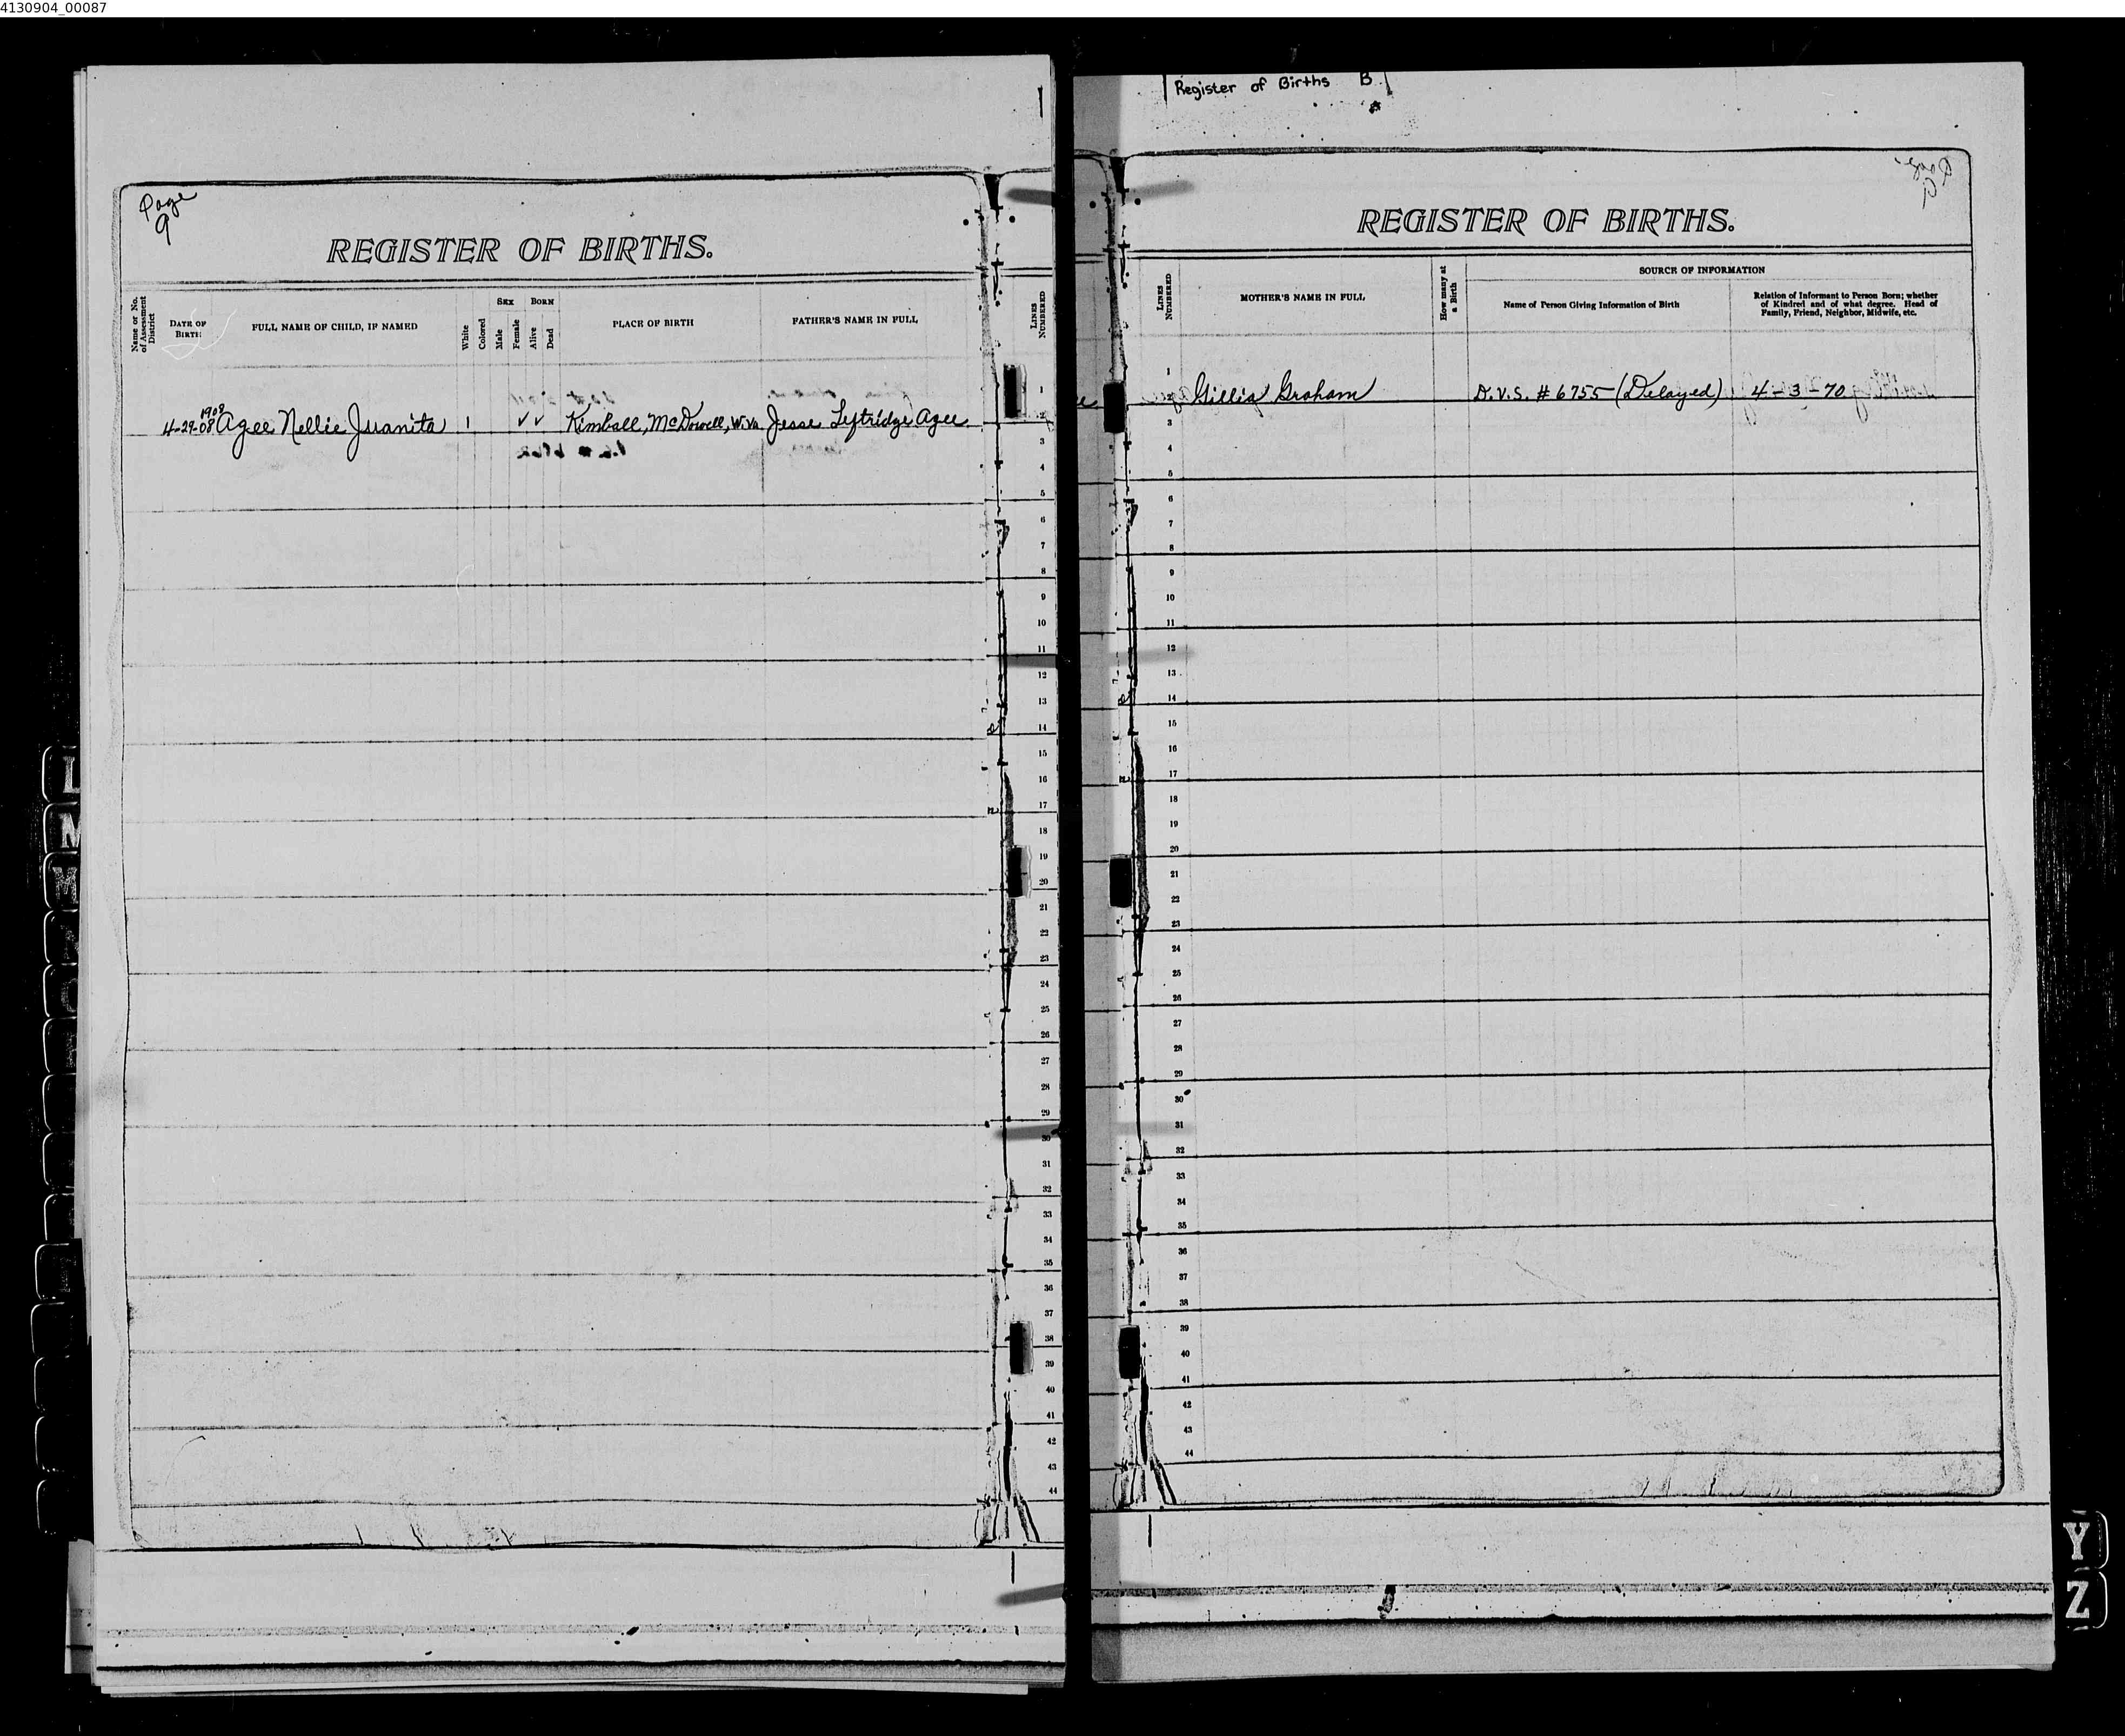 4130904_00087
Page
9
REGISTER OF BIRTHS.
Name or No. of Assessment District
DATE OF BIRTH
FULL NAME OF CHILD, IF NAMED
White
Colored
SEX
Male
Female
BORN
Alive
Dead
PLACE OF BIRTH
FATHER'S NAME IN FULL
LINES NUMBERED
1908
4-29-08 Agee Nellie Juanita 1 ✓ ✓ Kimball, McDowell, W.Va. Jesse Leftridge Agee
1
2
3
4
5
6
7
8
9
10
11
12
13
14
15
16
17
18
19
20
21
22
23
24
25
26
27
28
29
30
31
32
33
34
35
36
37
38
39
40
41
42
43
44
L
M
Register of Births B
REGISTER OF BIRTHS.
LINES NUMBERED
MOTHER'S NAME IN FULL
How many at a Birth
SOURCE OF INFORMATION
Name of Person Giving Information of Birth
Relation of Informant to Person Born; whether
of Kindred and of what degree. Head of
Family, Friend, Neighbor, Midwife, etc.
1
Gillia Graham D.V.S. # 6755 (Delayed) 4-3-70
3
4
5
6
7
8
9
10
11
12
13
14
15
16
17
18
19
20
21
22
23
24
25
26
27
28
29
30
31
32
33
34
35
36
37
38
39
40
41
42
43
44
Y
Z